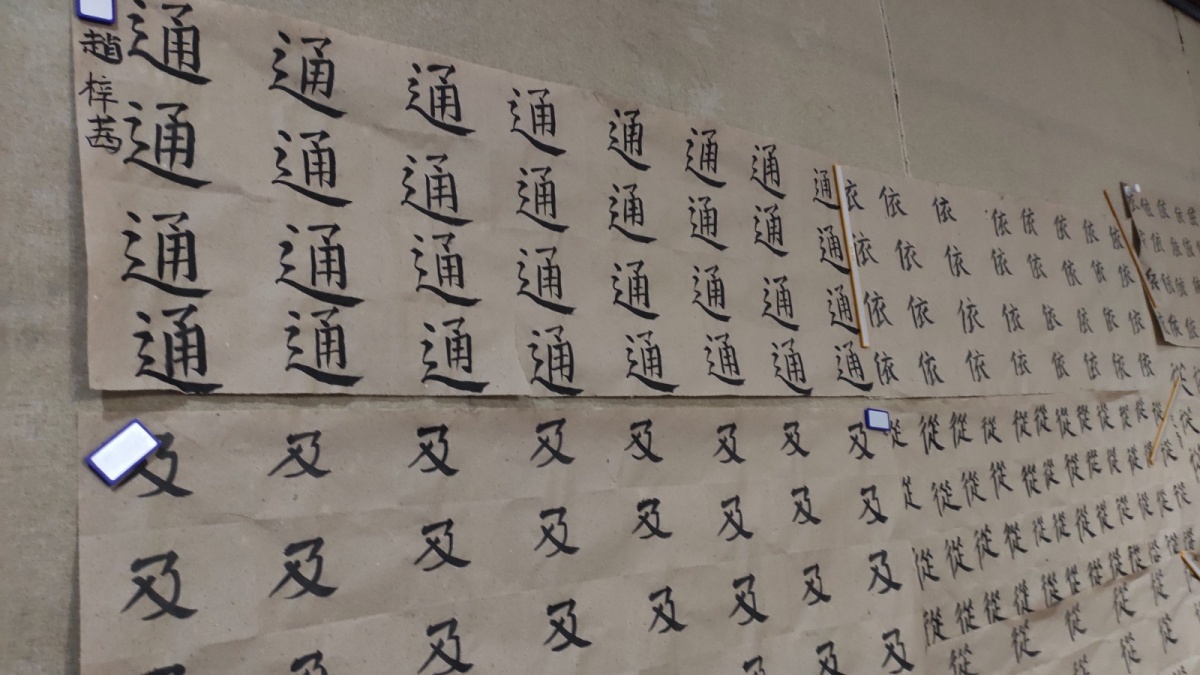 趙梓茜
通通通通通通通通
通通通通通通通通
通通通通通通通通
通通通通通通通通
依依依依依依依依
依依依依依依依依
依依依依依依依依
依依依依依依依依
及及及及及及及及
及及及及及及及及
及及及及及及及及
及及及
從從從從從從從從從從從
從從從從從從從從從從
從從從從從從從從從從
從從從從從從從從從從
從從從從從